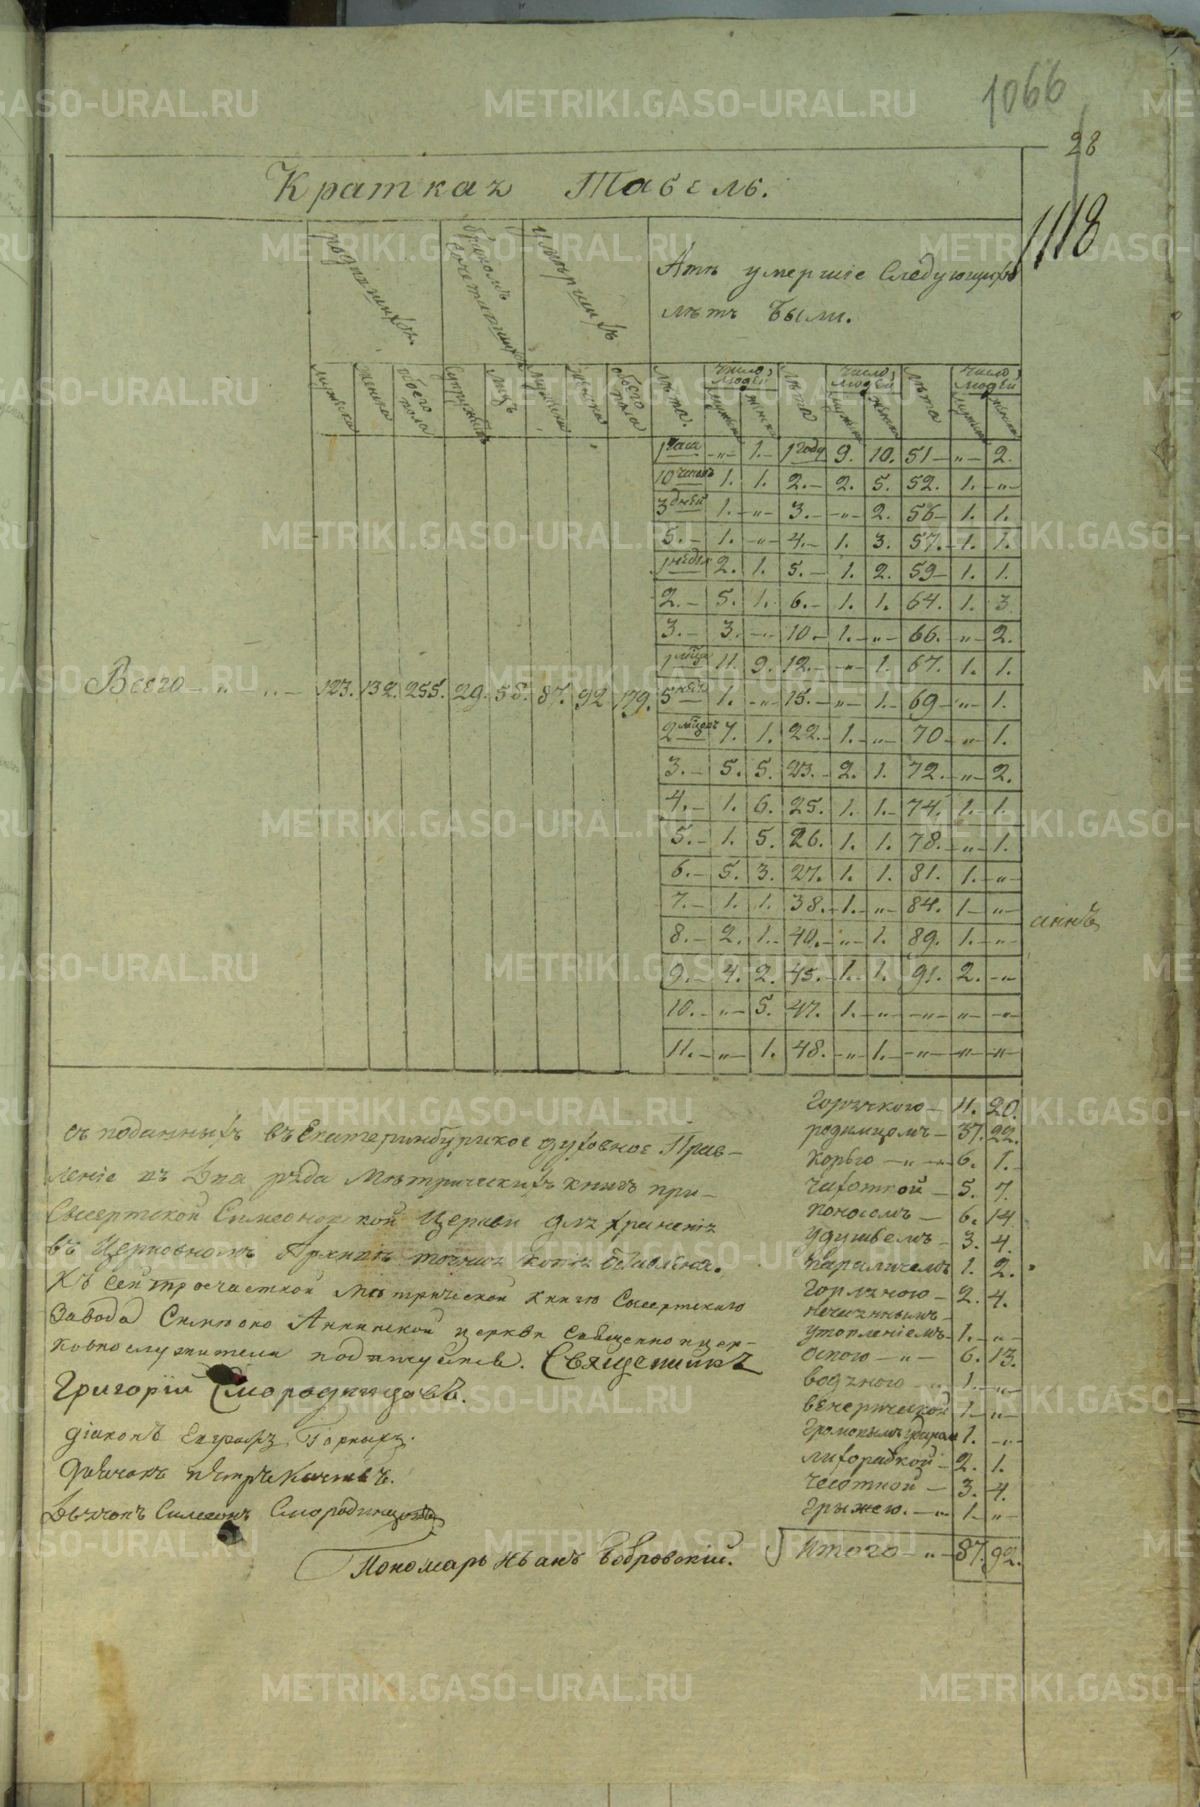 1066
28
1118
Краткая Табель.
рожденныхъ.
бракомъ сочетавшихся
умершихъ
Лѣтъ умершіе Следующихъ
лѣтъ были.
мужеска женска обоего пола супружествъ лицъ мужеска женска обоего пола лѣта. число людей мужеска женска лѣта число людей мужеска женска лѣта число людей мужеска женска
1 часа -„- 1.- 1 году 9. 10. 51 -„- 2.
10 часовъ 1. 1. 2.- 2. 5. 52. 1. -„-
3 дней 1. -„- 3.- -„- 2. 56- 1. 1.
5.- 1. -„- 4.- 1. 3. 57.- 1. 1.
1 недѣл 2. 1. 5.- 1. 2. 59- 1. 1.
2.- 5. 1. 6.- 1. 1. 64. 1. 3
3.- 3. -„- 10.- 1. -„- 66. -„- 2.
1 мѣца 11. 9. 12.- -„- 1. 67. 1. 1.
Всего -„- „- 123. 132. 255. 29. 58. 87. 92 179. 5 нед 1. -„- 15.- -„- 1.- 69 -„- 1.
2 мѣцовъ 7. 1. 22.- 1. -„- 70 -„- 1.
3.- 5. 5. 23.- 2. 1. 72. -„- 2.
4.- 1. 6. 25. 1. 1.- 74. 1. 1.
5.- 1. 5. 26. 1. 1. 78. -„- 1.
6.- 5. 3. 27. 1. 1. 81. 1. -„-
7.- 1. 1. 38.- 1. -„- 84. 1 -„-
8.- 2. 1.- 40.- -„- 1. 89. 1. -„-
аннъ
9.- 4. 2. 45.- 1. 1. 91. 2. -„-
10.- -„- 5. 47. 1. -„- -„- -„- -„-
11.- -„- 1. 48. -„- 1. -„- -„- -„-
съ поданныхъ въ Екатеринбургское духовное Прав-
леніе въ два ряда Метрическихъ книгъ при-
Сысертской Симеоновской Церкви для храненія
въ Церковномъ Архивѣ точная копія оставлена.
Къ сей троечастной метрической книгѣ Сысертскаго
Завода Симеоно Аннинской церкви священно и цер-
ковнослужители подпишуемся. Священникъ
Григорій Смородинцовъ.
діаконъ Евграфъ
дьячокъ Петръ
Дьячокъ Симеонъ Смородинцовъ
Пономарь Иванъ Бобровскій.
Горячкою - 11. 20.
родимцомъ - 37. 22.
Корью -„- 6. 1.-
чахоткой - 5. 7.
поносомъ - 6. 14
Удушьемъ - 3. 4.
параличемъ 1. 2.
Горляною - 2. 4.
нечаяннымъ
утопленіемъ 1. -„-
Оспою -„- 6. 13.
водяною -„- 1. -„-
венерической 1 -„-
Громовымъ ударом 1. -„-
лихорадкой - 2. 1.
чесоткой - 3. 4.
Грыжею. -„- 1. -„-
Итого -„- 87. 92.
METRIKI.GASO-URAL.RU